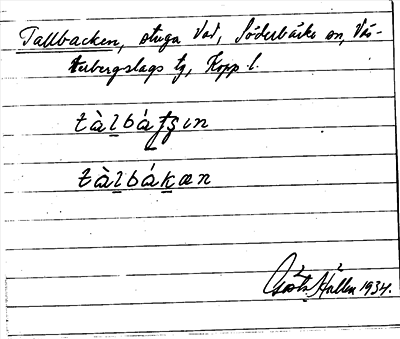 Tallbacken, stuga Vad, Söderbärke sn, Väs-
terbergslags tg, Kopp l.
tàlbátʂın
tàlbákæn
Gösta Hallen 1934.